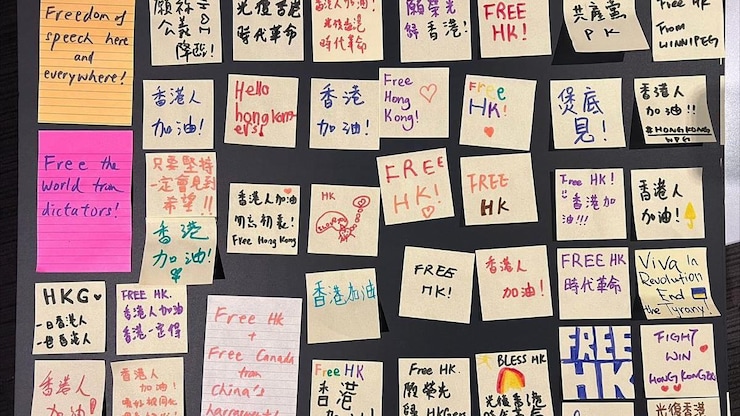 Freedom of
speech here
and
everywhere!
願祢
公義
降臨!
光復香港
時代革命
香港人加油!
光復香港
時代革命
願榮光
歸香港!
FREE
HK!
共產黨
PK
Free HK
From
WINNIPEG
香港人
加油!
Hello
hongkong-
ers!
香港
加油!
Free
Hong
Kong!
Free
HK!
煲底
見!
香港人
加油!!
#HONGKONG
WPG
Free the
world from
dictators!
只要堅持
一定會見到
希望!!
香港
加油!
香港人加油
勿忘初衷!
Free Hong Kong
HK
FREE
HK!
FREE
HK
Free HK!
香港加
油!!!
香港人
加油!
HKG
一日香港人
一世香港人
FREE HK.
香港人加油
香港一定得
Free HK
+
Free Canada
from
China's
harrassment!
香港加油
FREE
HK!
香港人
加油!
FREE HK
時代革命
Viva la
Revolution
End
the Tyrany!
香港人
加油!
香港人
加油!
Free HK
香港
Free HK.
願榮光
歸HKger
BLESS HK
光復香港
FREE
HK
FIGHT
WIN
HONG KONG
光復香港